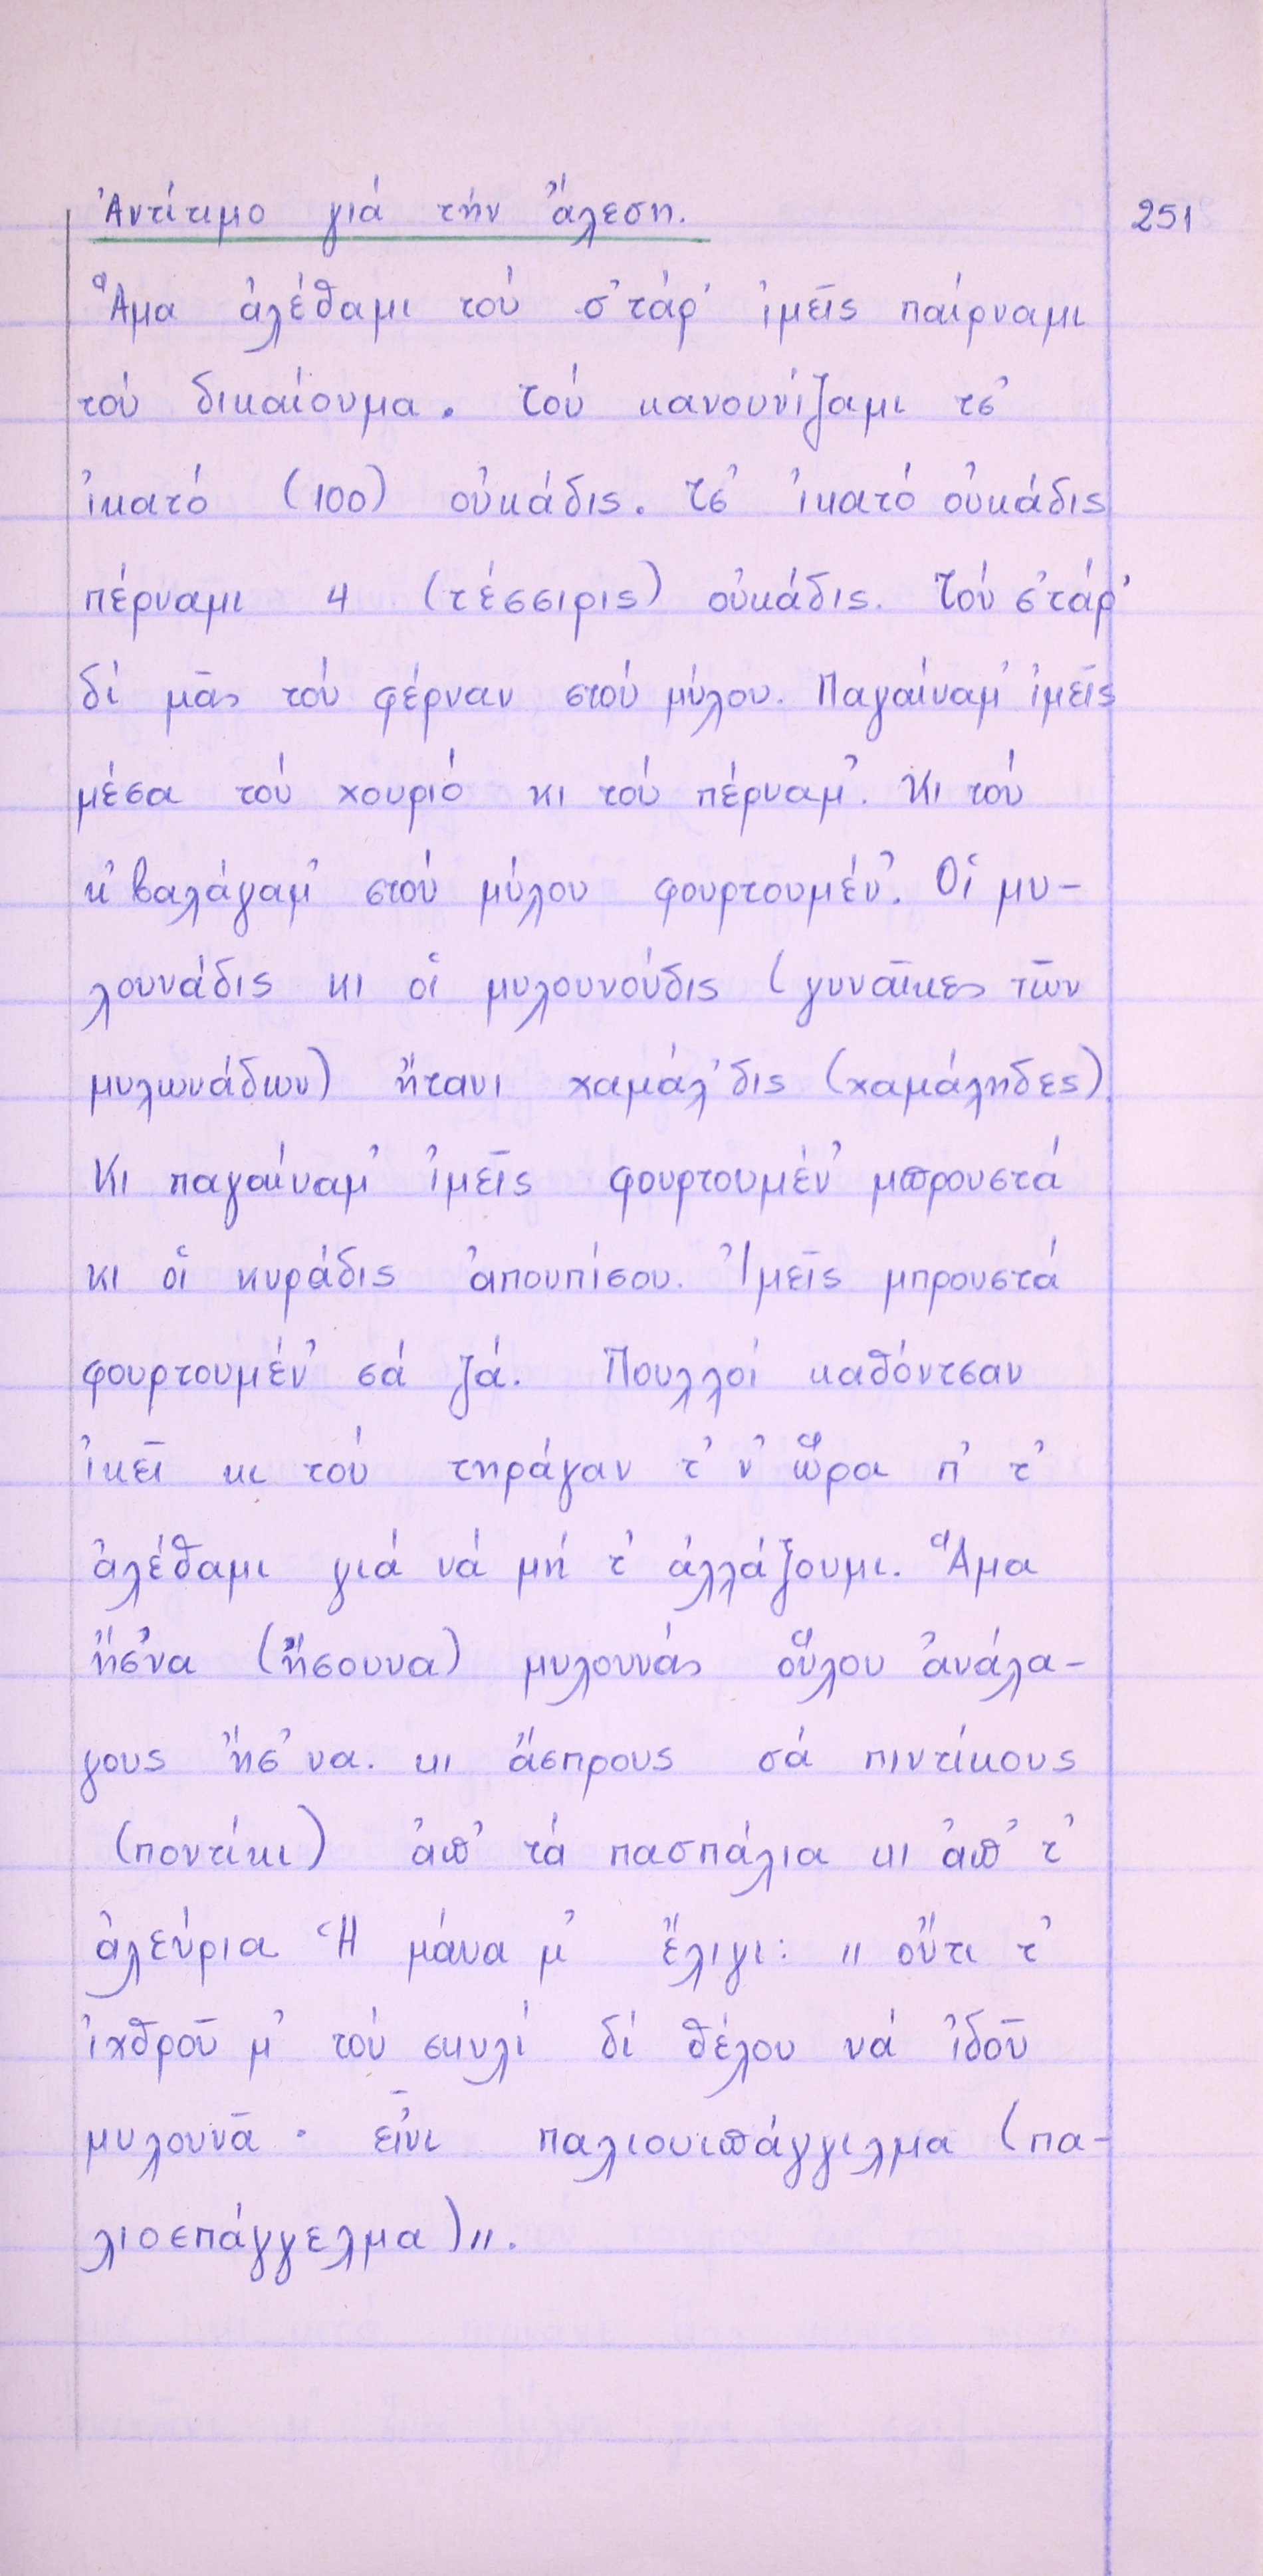 Ἀντίτιμο γιά τήν ἄλεση. 251
Ἅμα ἀλέθαμι τού σ'τάρ' ἰμεῖς παίρναμι
τού δικαίουμα. Τού κανουνίζαμι τσ'
ἰκατό (100) οὐκάδις. Τσ' ἰκατό οὐκάδις
πέρναμι 4 (τέσσιρις) οὐκάδις. Τού σ'τάρ'
δί μᾶς τού φέρναν στού μύλου. Παγαίναμ' ἰμεῖς
μέσα τού χουριό κι τού πέρναμ'. Κι τού
κ'βαλάγαμ' στού μύλου φουρτουμέν'. Οἱ μυ-
λουνάδις κι οἱ μυλουνούδις (γυναῖκες τῶν
μυλωνάδων) ἤτανι χαμάλ'δις (χαμάληδες).
Κι παγαίναμ' ἰμεῖς φουρτουμέν' μπρουστά
κι οἱ κυράδις ἀπουπίσου. Ἰμεῖς μπρουστά
φουρτουμέν' σά ζά. Πουλλοί καθόντσαν
ἰκεῖ κι τού τηράγαν τ' ν' ὥρα π' τ'
ἀλέθαμι γιά νά μή τ' ἀλλάζουμι. Ἅμα
ἤσ'να (ἤσουνα) μυλουνάς οὕλου ἀνάλα-
γους ἤσ'να. κι ἄσπρους σά πιντίκους
(ποντίκι) ἀπ' τά πασπάλια κι ἀπ' τ'
ἀλεύρια Ἡ μάνα μ' ἔλιγι: " οὔτι τ'
ἰχθροῦ μ' τού σκυλί δί θέλου νά ἰδοῦ
μυλουνᾶ · εἶνι παλιουιπάγγιλμα (πα-
λιοεπάγγελμα)".